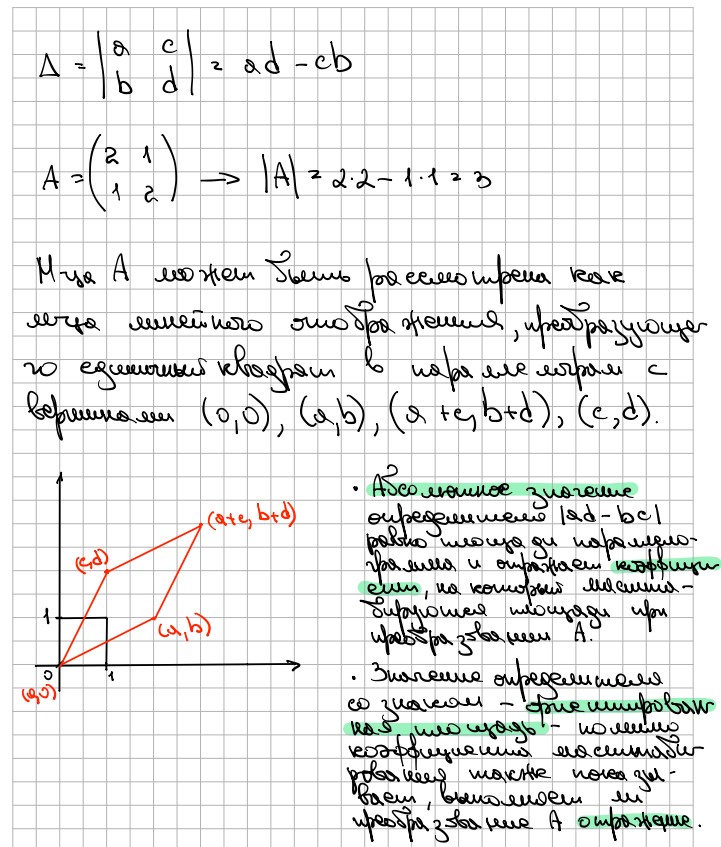 Δ = |a c; b d| = ad - cb
A = (2 1; 1 2) → |A| = 2·2 - 1·1 = 3
М-ца А может быть рассмотрена как
м-ца линейного отображения, преобразующе
го единичный квадрат в параллелограм с
вершинами (0,0), (a,b), (a+c, b+d), (c,d).
(a+c, b+d)
(c,d)
1
(a,b)
0
1
(0,0)
· Абсолютное значение
определителя |ad-bc|
равно площади парамело-
грамма и отражает коэффици
ент, на который масшта-
бируются площади при
преобразовании А.
· Значение определителя
со знаком - ориентирован
ная площадь - помимо
коэффициента масштаби
рования также показы-
вает, выполняет ли
преобразование А отражение.